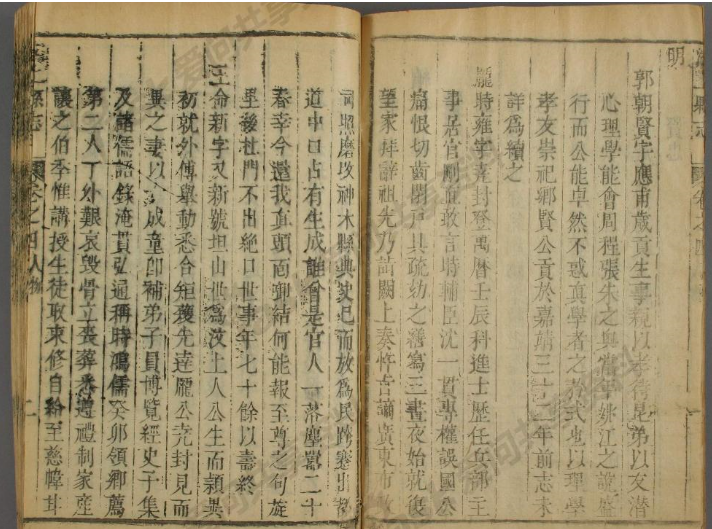 明
郭朝賢字應甫歲貢生事親以孝待昆弟以友潛
心理學能會周程張朱之與當寧姚江之說盛
行而公能卓然不惑真學者之式也以理學
孝友崇祀鄉賢公貢於嘉靖三十年前志未
詳爲續之
龐時雍字堯封登萬曆壬辰科進士歷任兵部主
事居官剛直敢言時輔臣沈一貫專權誤國公
痛恨切齒閉戶具疏幼之繕寫三晝夜始就復
望家拜辭祖先乃詣闕上奏忤旨謫廣東市舶
司照磨攺神木縣典史已而放爲民跨蹇出
道中口占有生成誰會是官人一落塵囂二十
春幸今還我真頭面卸結何能報至尊之句旋
里後杜門不出絕口世事年七十餘以壽終
王命新字又新號坦山世爲汶上人公生而穎異
初就外傅舉動悉合矩矱先達龐公堯封見而
異之妻以女成童卽補弟子員博覽經史子集
及諸儒語錄淹貫弘通稱時鴻儒癸卯領鄉薦
第二人丁外艱哀毀骨立喪葬悉遵禮制家產
讓之伯季惟講授生徒取束修自給至慈幃甘
縣志
卷之四人物
二